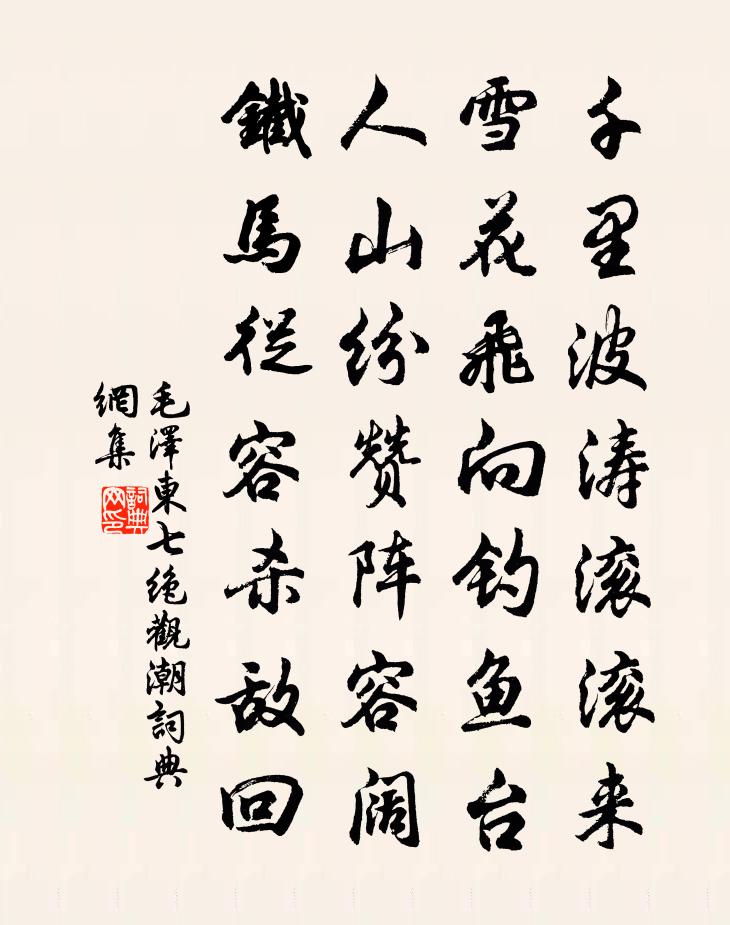 千里波涛滚滚来
雪花飞向钓鱼台
人山纷赞阵容阔
鐵馬從容杀敌回
毛澤東七絶觀潮詞典
網集
詞典
网印